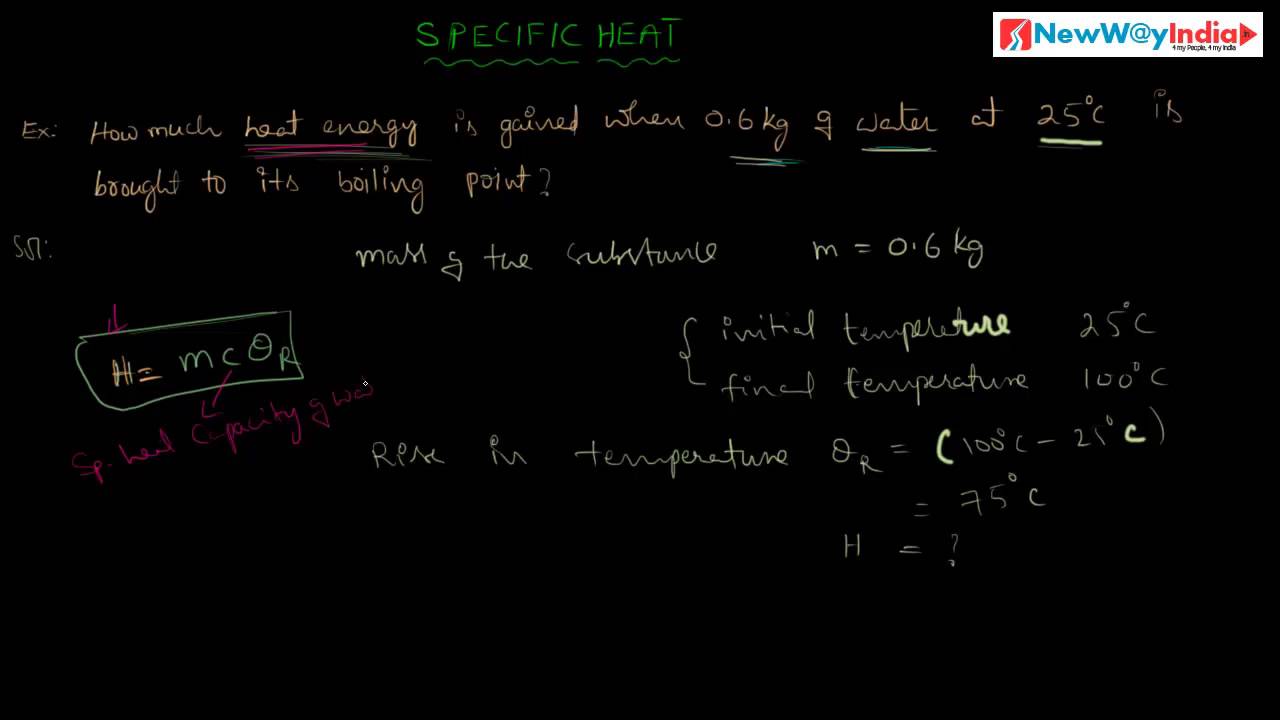 SPECIFIC HEAT
NewW@yIndia.in
4 my People, 4 my India
Ex: How much heat energy is gained when 0.6 kg of water at 25°C is
brought to its boiling point?
Sol:
mass of the substance m = 0.6 kg
initial temperature 25°C
final temperature 100°C
H = mcθR
Sp. heat capacity of wa
Rise in temperature θR = (100°C - 25°C)
= 75°C
H = ?